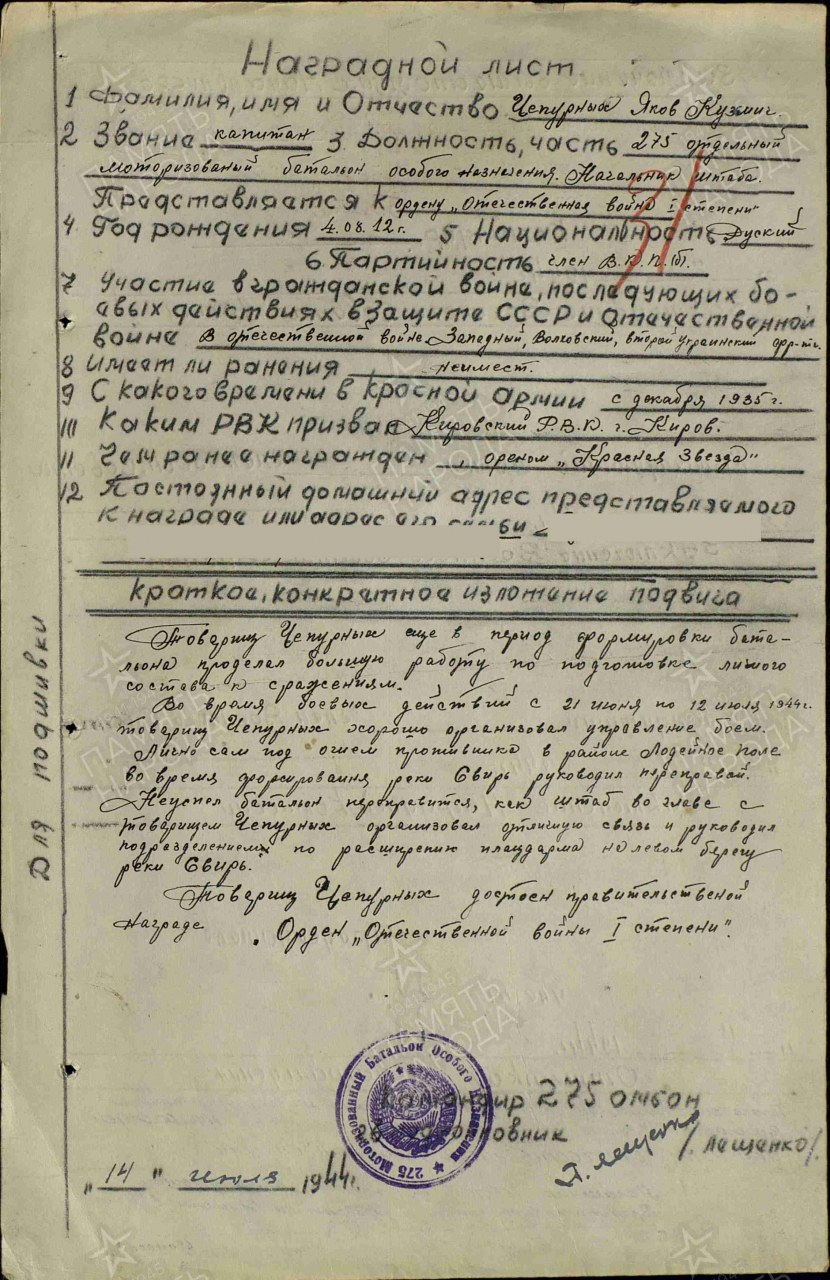 Наградной лист
1 Фамилия, имя и Отчество Чепурных Яков Кузмич.
2 Звание капитан 3. Должность, часть 275 отдельный
моторизованый батальон особого назначения. Начальник штаба.
Представляется к ордену „Отечественная война I степени"
4 Год рождения 4.08.12 г. 5 Национальность Руский
6. Партийность член В.К.П.(б).
7 Участие в гражданской войне, последующих бо-
евых действиях в защите СССР и отечественной
войне В отечественной войне Западный, Волховский, второй Украинский фр-ты.
8 Имеет ли ранения неимеет.
9 С какого времени в красной армии с декабря 1935 г.
10 Каким РВК призван Кировский Р.В.К. г. Киров.
11 Чем ранее награжден орденом „Красная Звезда"
12 Постоянный домашний адрес представляемого
к награде или адрес его семьи
Краткое, конкретное изложение подвига
Товарищ Чепурных еще в период формировки бата-
льона проделал большую работу по подготовке личного
состава к сражениям.
Во время боевых действий с 21 июня по 12 июля 1944 г.
товарищ Чепурных хорошо организовал управление боем.
Лично сам под огнем противника в районе Лодейное поле
во время форсирования реки Свирь руководил переправой.
Неуспел батальон переправится, как штаб во главе с
товарищем Чепурных организовал отличную связь и руководил
подразделениями по расширению плацдарма на левом берегу
реки Свирь.
Товарищ Чепурных достоен правительственой
награде Орден „Отечественной войны I степени".
Для подшивки
275 Моторизованный Батальон Особого Назначения
Командир 275 омбон
/Лащенко/.
„14" июля 1944 г.
ПАМЯТЬ НАРОДА